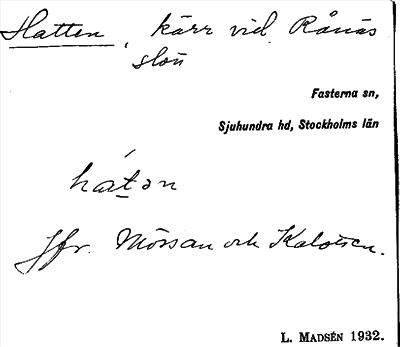 Hatten, kärr vid Rånäs
slott
Fasterna sn,
Sjuhundra hd, Stockholms län
hátən
Jfr. Mössan och Kalotten.
L. MADSÉN 1932.